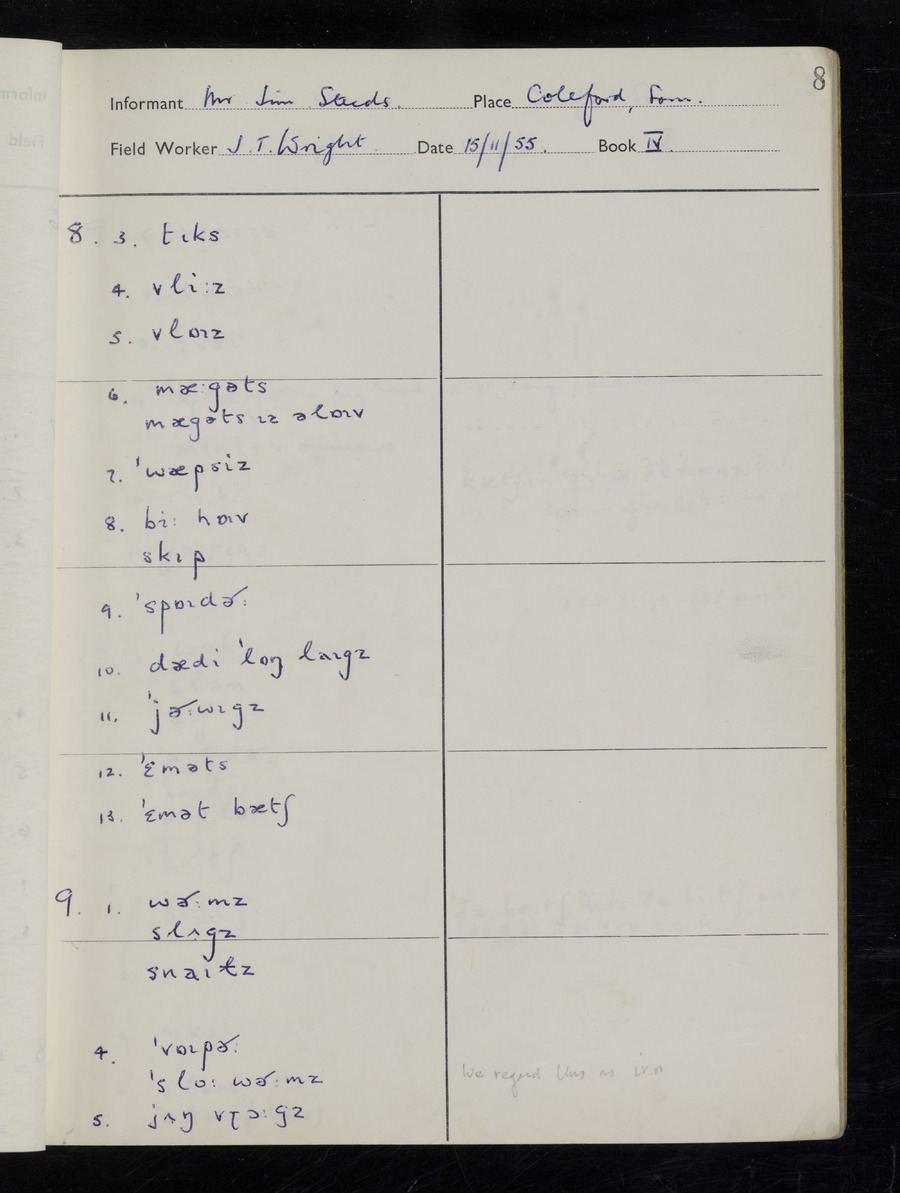 8
Informant Mr Jim Seeds. Place Coleford, Som.
Field Worker J.T. Wright Date 15/11/55. Book IV
8. 3. tɩks
4. vli:z
5. vlɒɩz
6. mæ:gəts
mægəts ɩz əlɒɩv
7. ˈwæpsiz
8. bi: hɒɩv
skɩp
9. ˈspɒɩdɚ:
10. dædi ˈlɒŋ laɩgz
11. ˈjɚ:wɩgz
12. ˈɛməts
13. ˈɛmət bætʃ
9. 1. wɚ:mz
slʌgz
snaɩɫz
4. ˈvɒɩpɚ:
ˈslo: wɚ:mz
5. jʌŋ vɽɔ:gz
We regard this as iv.n